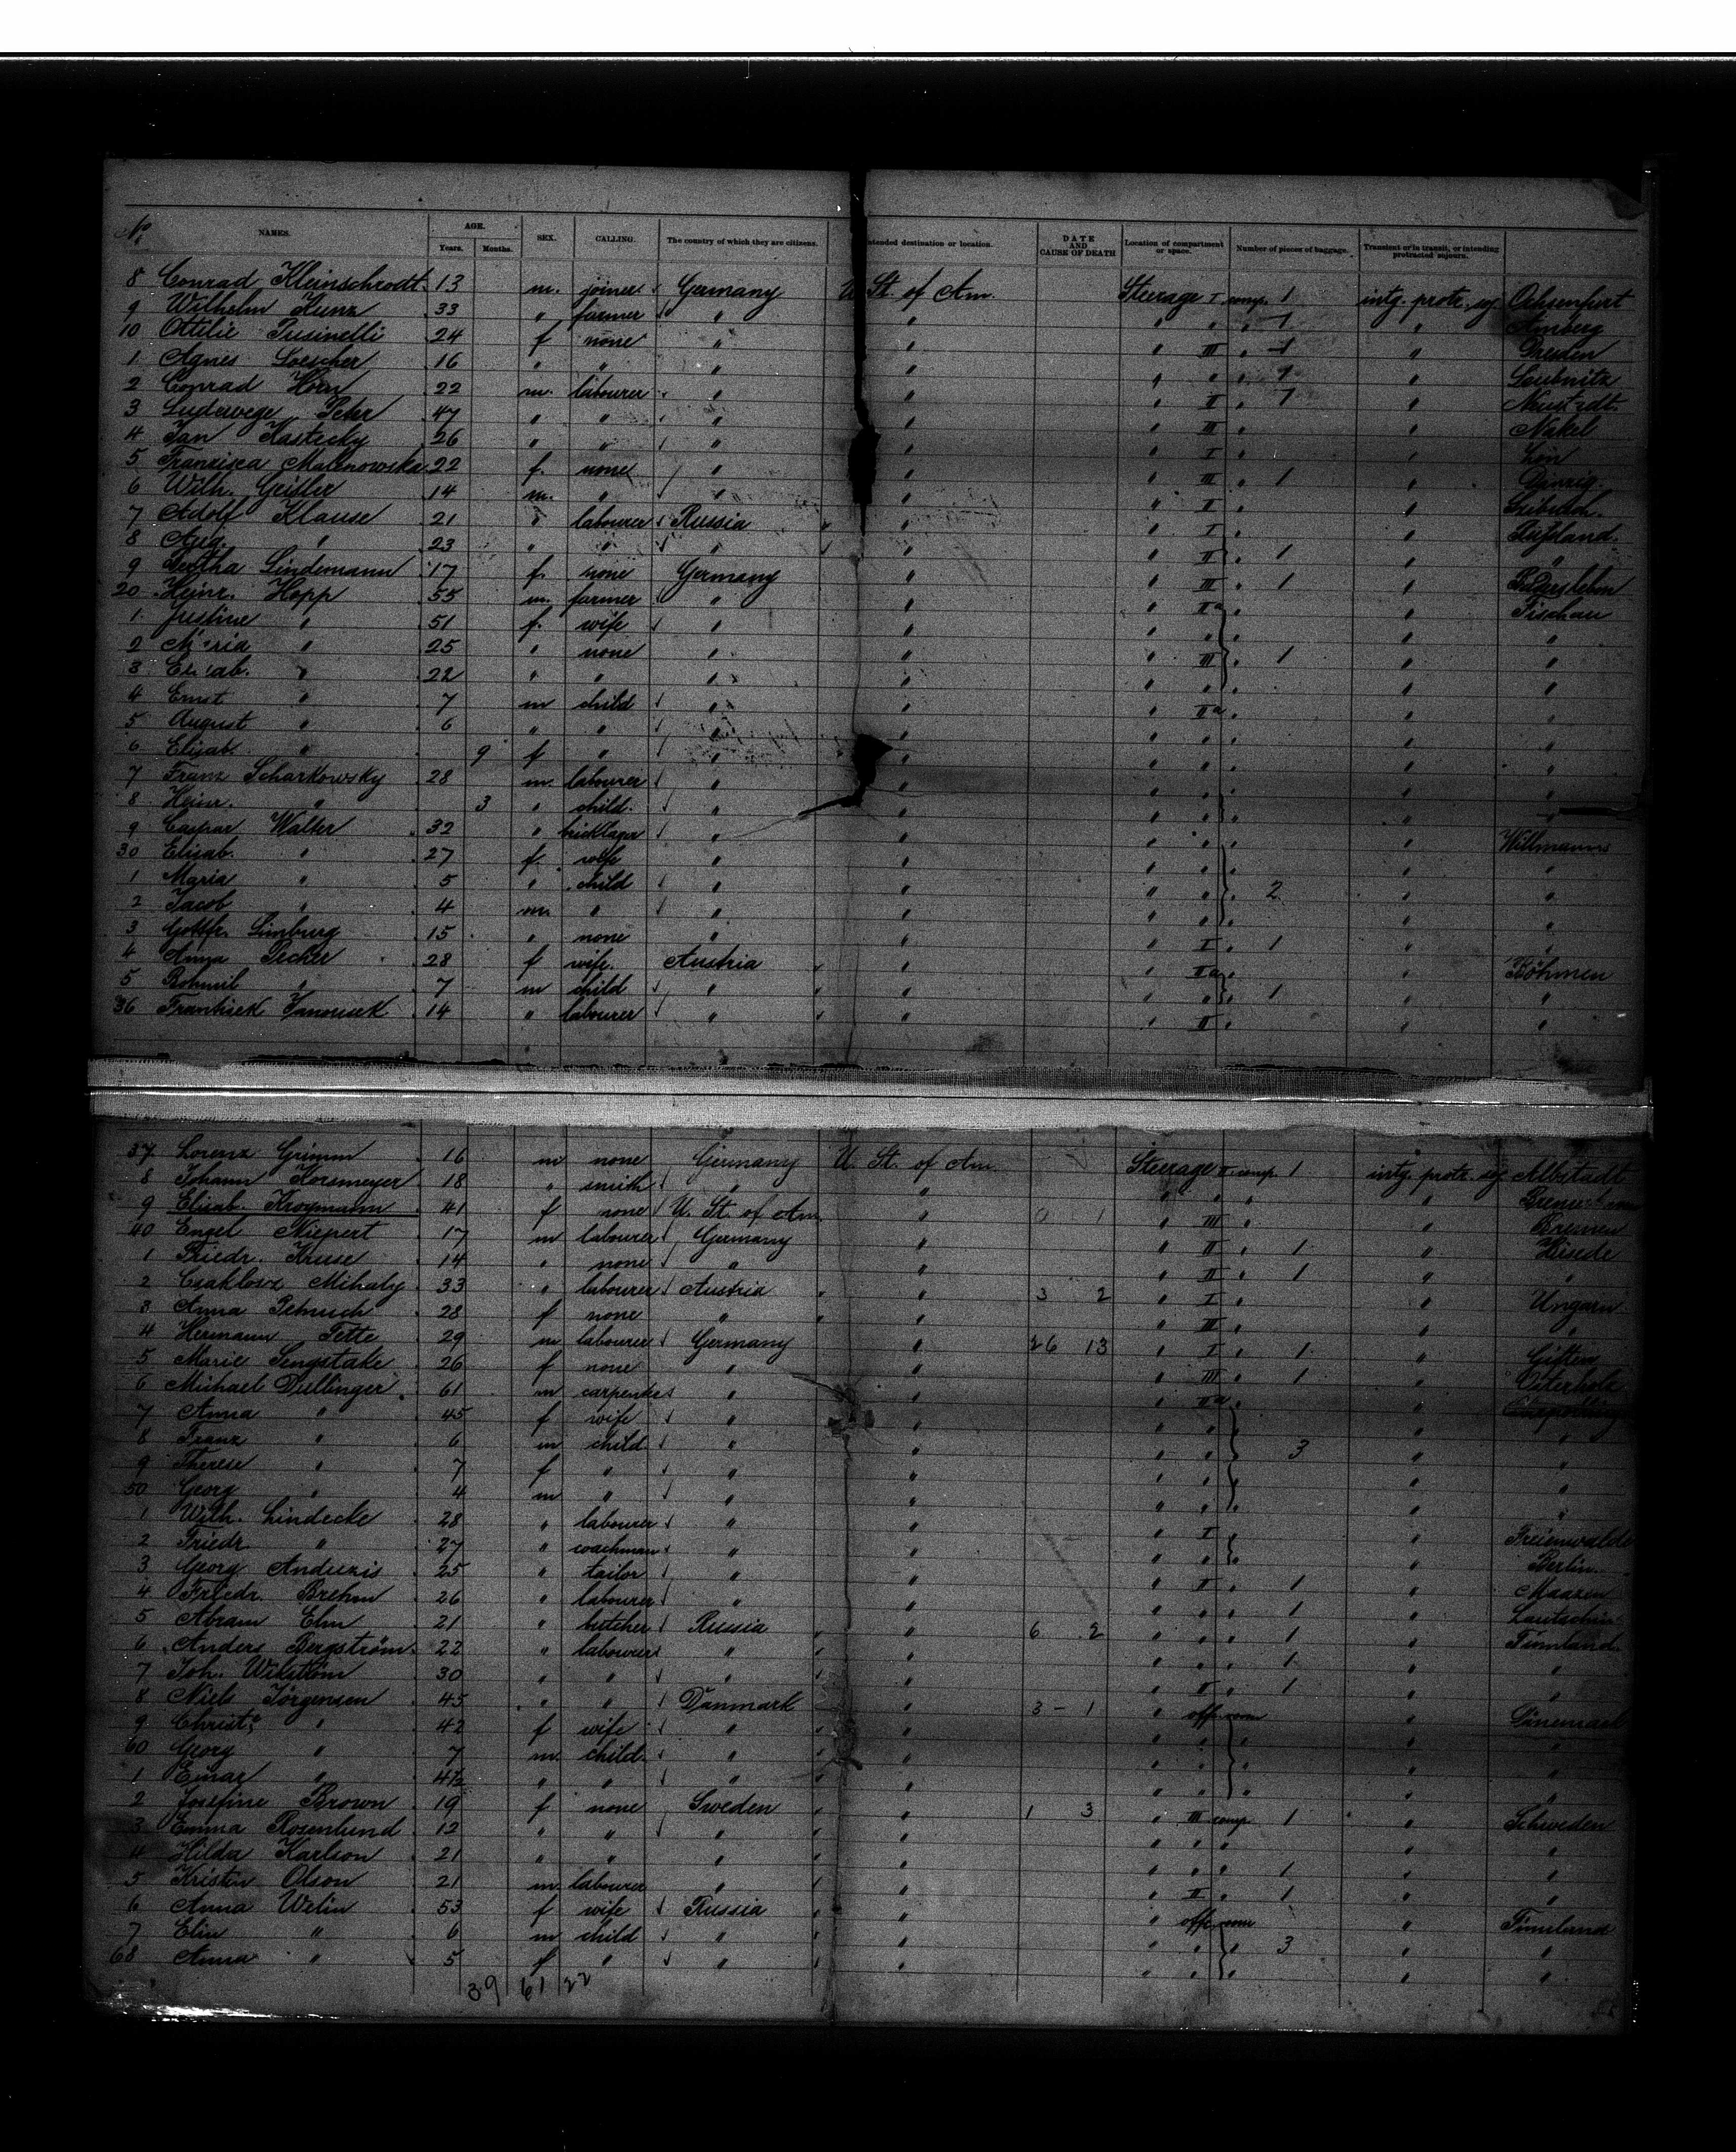 No. NAMES. AGE. Years. Months. SEX. CALLING. The country of which they are citizens. Intended destination or location. DATE AND CAUSE OF DEATH Location of compartment or space. Number of pieces of baggage. Transient or in transit, or intending protracted sojourn.
8 Conrad Kleinschrodt 13 m. joiner Germany U St. of Am. Steerage I comp. 1 intg. protr. soj. Ochsenfurt
9 Wilhelm Kunz 33 " farmer " " " " " 1 " Amberg
10 Ottilie Pusinelli 24 f none " " " III " 1 " Dresden
1 Agnes Loescher 16 " " " " " " " 1 " Leubnitz
2 Conrad Horn 22 m. labourer " " " II " 1 " Neustadt
3 Ludewege Peter 47 " " " " " III " " Nakel
4 Jan Kastecky 26 " " " " " I "
5 Francisca Malinowska 22 f. none " " " III " 1 " Danzig.
6 Wilh. Geisler 14 m. " " " " II " "
7 Adolf Klause 21 " labourer Russia " " I " Rußland.
8 Aug. " 23 " " " " " II " 1 " "
9 Bertha Lindemann 17 f. none Germany " " III " 1 "
20 Heinr. Hopp 55 m. farmer " " " IIa " " Tischau
1 Justine " 51 f. wife " " " " " " "
2 Maria " 25 " none " " " III " 1 " "
3 Elisab. " 22 " " " " " " " "
4 Ernst " 7 m child " " " IIa " " "
5 August " 6 " " " " " " " " "
6 Elisab. " 9 f " " " " " " " "
7 Franz Scharkowsky 28 m. labourer " " " " " " "
8 Heinr. " 3 " child. " " " " " " "
9 Caspar Walter 32 " bricklayer " " " " " " Willmanns
30 Elisab. " 27 f. wife " " " " " " "
1 Maria " 5 " child " " " " 2 " "
2 Jacob " 4 m. " " " " " " " "
3 Gottfr. Limburg 15 " none " " " I " 1 " "
4 Anna Pecher 28 f wife. Austria " " IIa " " Böhmen
5 Bohmil " 7 m child " " " " " 1 " "
36 Frantisek Janousek 14 " labourer " " " II " " "
37 Lorenz Grimm 16 m none Germany U. St. of Am Steerage II comp 1 intg. protr. soj. Albstadt
8 Johann Korsmeyer 18 " smith " " " " " "
9 Elisab. Krogmann 41 f none U. St. of Am. " 0 1 " III " " Bremen
40 Engel Niepert 17 m labourer Germany " " II " 1 " Hisede
1 Friedr. Kruse 14 " none " " " II " 1 " "
2 Csaklosz Mihaly 33 " labourer Austria " 3 2 " I " " Ungarn
3 Anna Petruch 28 f none " " " III " " "
4 Hermann Tette 29 m labourer Germany " 26 13 " I " 1 " Giften
5 Marie Sengstake 26 f none " " " III " 1 " Osterholz
6 Michael Dullinger 61 m carpenter " " " IIa "
7 Anna " 45 f wife " " " " " "
8 Franz " 6 m child " " " " 3 " "
9 Therese " 7 f " " " " " " "
50 Georg " 4 m " " " " " " " "
1 Wilh. Lindecke 28 " labourer " " " I " Freienwalde
2 Friedr. " 27 " coachman " " " " " " Berlin.
3 Georg Anduzis 25 " tailor " " " II " 1 " Maazen
4 Friedr. Brehm 26 " labourer " " " " " 1 "
5 Abram Elm 21 " butcher Russia " 6 2 " " " 1 " Finnland.
6 Anders Bergström 22 " labourer " " " " " 1 " "
7 Joh. Wikström 30 " " " " " II " 1 " "
8 Niels Jörgensen 45 " " Danmark " 3 - 1 " off. room " Dänemark
9 Christe " 42 f wife " " " " " "
60 Georg " 7 m. child. " " " " " "
1 Einar " 4½ " " " " " " " " "
2 Josefine Brown 19 f none Sweden " 1 3 " III comp 1 " Schweden
3 Emma Rosenlund 12 " " " " " " " " "
4 Hilda Karlson 21 " " " " " " " 1 " "
5 Kristin Olson 21 m. labourer " " " II " 1 " "
6 Anna Welin 53 f wife Russia " " off. room " Finnland
7 Elin " 6 m child " " " " " 3 " "
68 Anna " 5 f " " " " " " " "
39 61 22